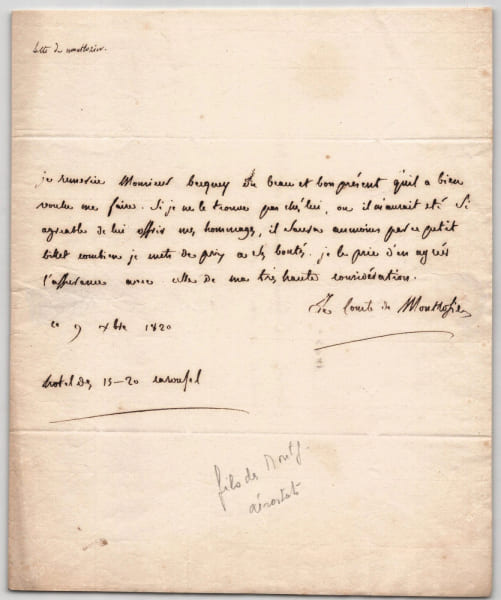 lettre de montlosier.
je remercie Monsieur becquey du beau et bon présent qu'il a bien
voulu me faire. Si je ne le trouve pas chés lui, ou il m'aurait été Si
agréable de lui offrir mes hommages, il Saura aumoins par ce petit
billet combien je mets de prix a ses bontés. je le prie d'en agréer
l'assurance avec celle de ma très haute considération.
Le Comte de Montlosier
ce 9 xbre 1820
hotel Des 15-20 carousel
fils de Montg.
aérostats